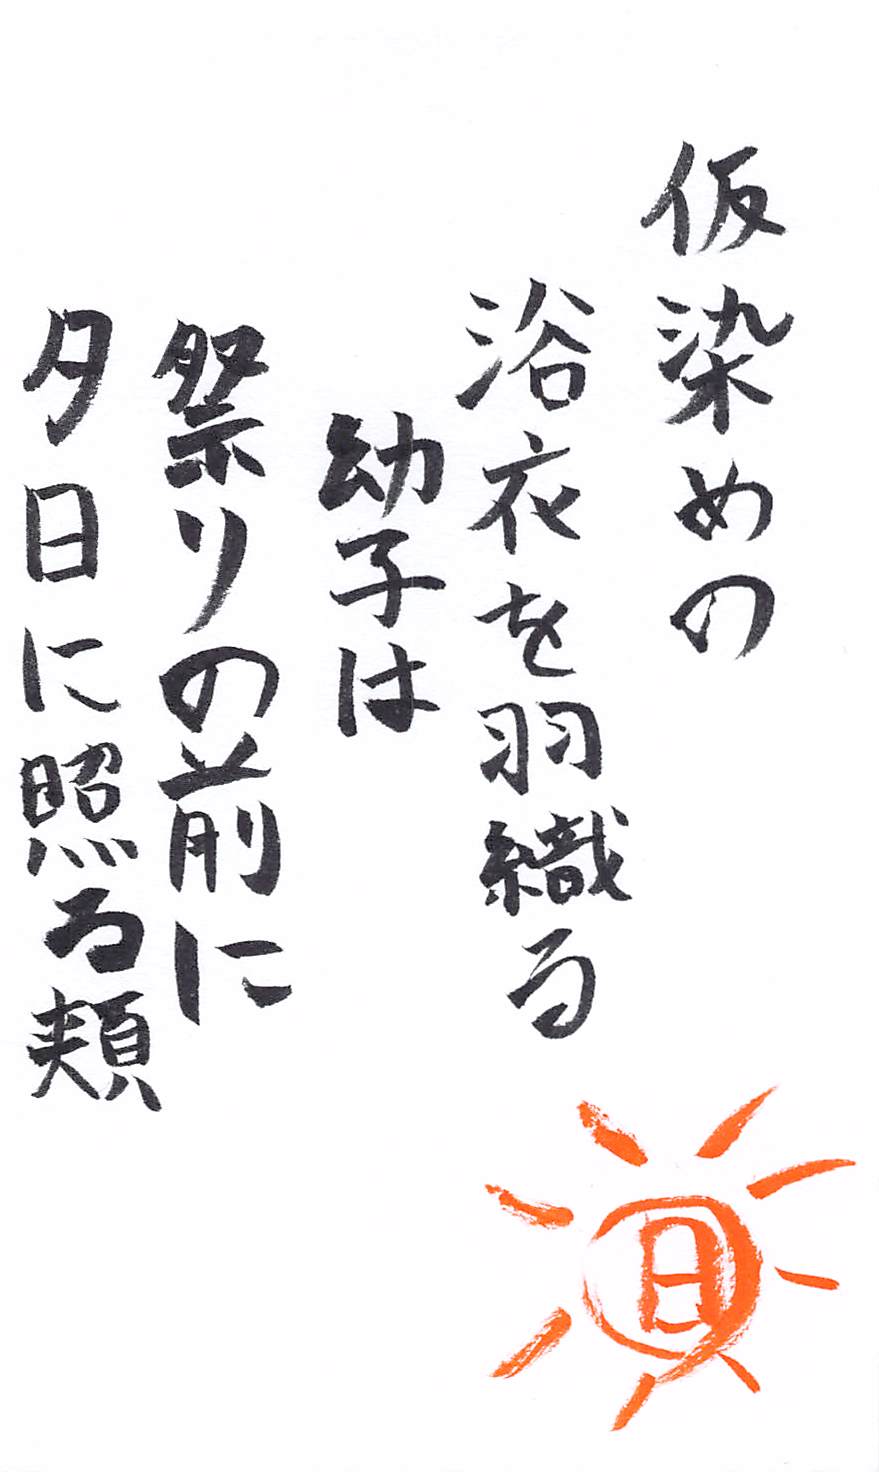 仮染めの
浴衣を羽織る
幼子は
祭りの前に
夕日に照る頬
日